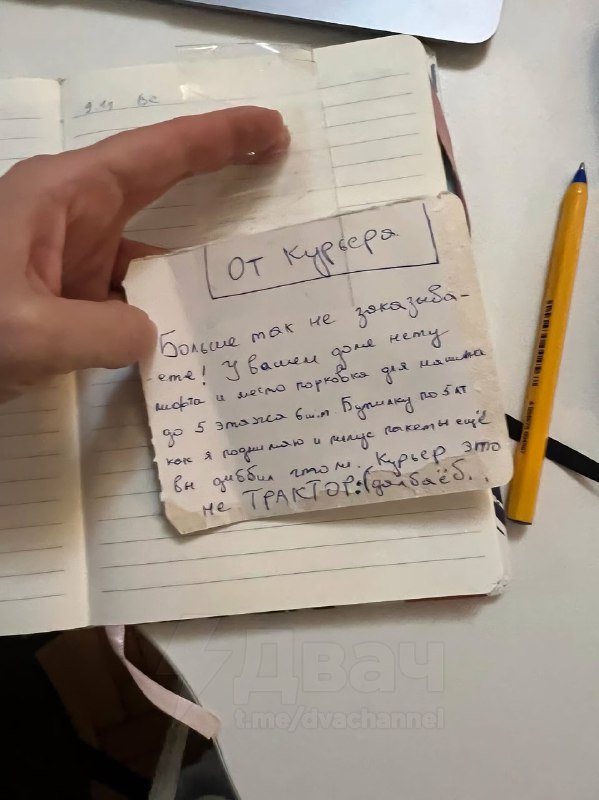 От Курьера
Больше так не заказыва-
ете! У вашем доме нету
лифта и место порковка для машина
до 5 этажа 6 шт. Бутилку по 5 лт
как я поднимаю и плюс пакеты ещё
вы диббил штоли. Курьер это
не ТРАКТОР:( далбаёб.
Двач
t.me/dvachannel